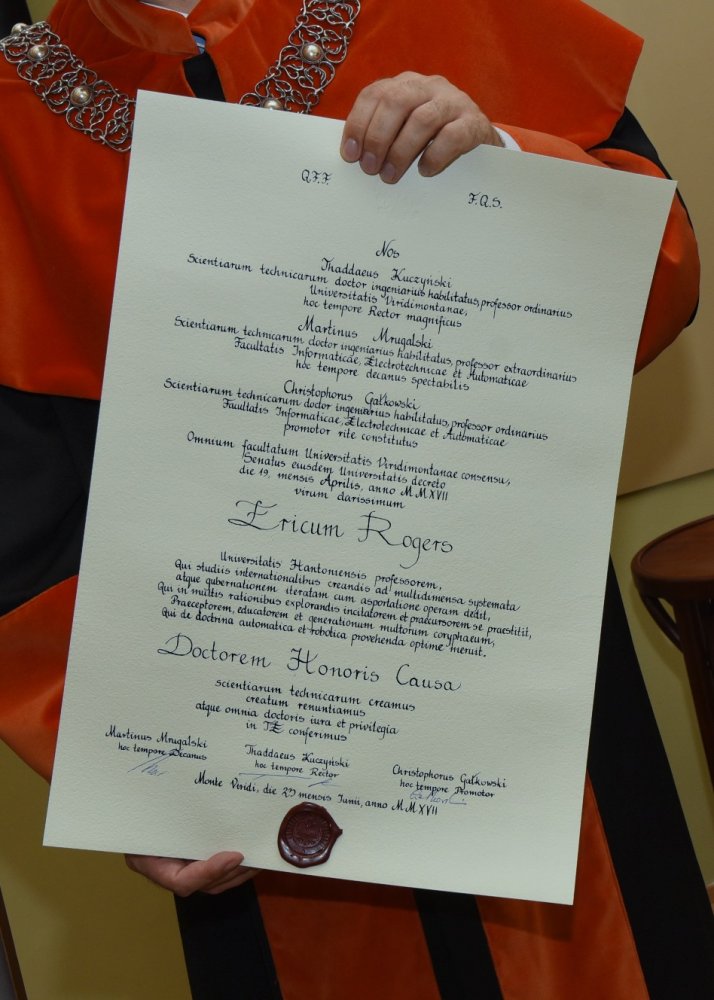 Q.F.F. F.Q.S.
Nos
Thaddaeus Kuczyński
Scientiarum technicarum doctor ingeniarius habilitatus, professor ordinarius
Universitatis Viridimontanae,
hoc tempore Rector magnificus
Martinus Mrugalski
Scientiarum technicarum doctor ingeniarius habilitatus, professor extraordinarius
Facultatis Informaticae, Electrotechnicae et Automaticae
hoc tempore decanus spectabilis
Christophorus Gałkowski
Scientiarum technicarum doctor ingeniarius habilitatus, professor ordinarius
Facultatis Informaticae, Electrotechnicae et Automaticae
promotor rite constitutus
Omnium facultatum Universitatis Viridimontanae consensu,
Senatus eiusdem Universitatis decreto
die 19, mensis Aprilis, anno MMXVII
virum clarissimum
Ericum Rogers
Universitatis Hantoniensis professorem,
Qui studiis internationalibus creandis ad multidimensa systemata
atque gubernationem iteratam cum asportatione operam dedit,
Qui in multis rationibus explorandis incitatorem et praecursorem se praestitit,
Praeceptorem, educatorem et generationum multorum coryphaeum,
Qui de doctrina automatica et robotica provehenda optime meruit.
Doctorem Honoris Causa
scientiarum technicarum creamus
creatum renuntiamus
atque omnia doctoris iura et privilegia
in TE conferimus
Martinus Mrugalski Thaddaeus Kuczyński Christophorus Gałkowski
hoc tempore Decanus hoc tempore Rector hoc tempore Promotor
Monte Viridi, die 29 mensis Iunii, anno MMXVII